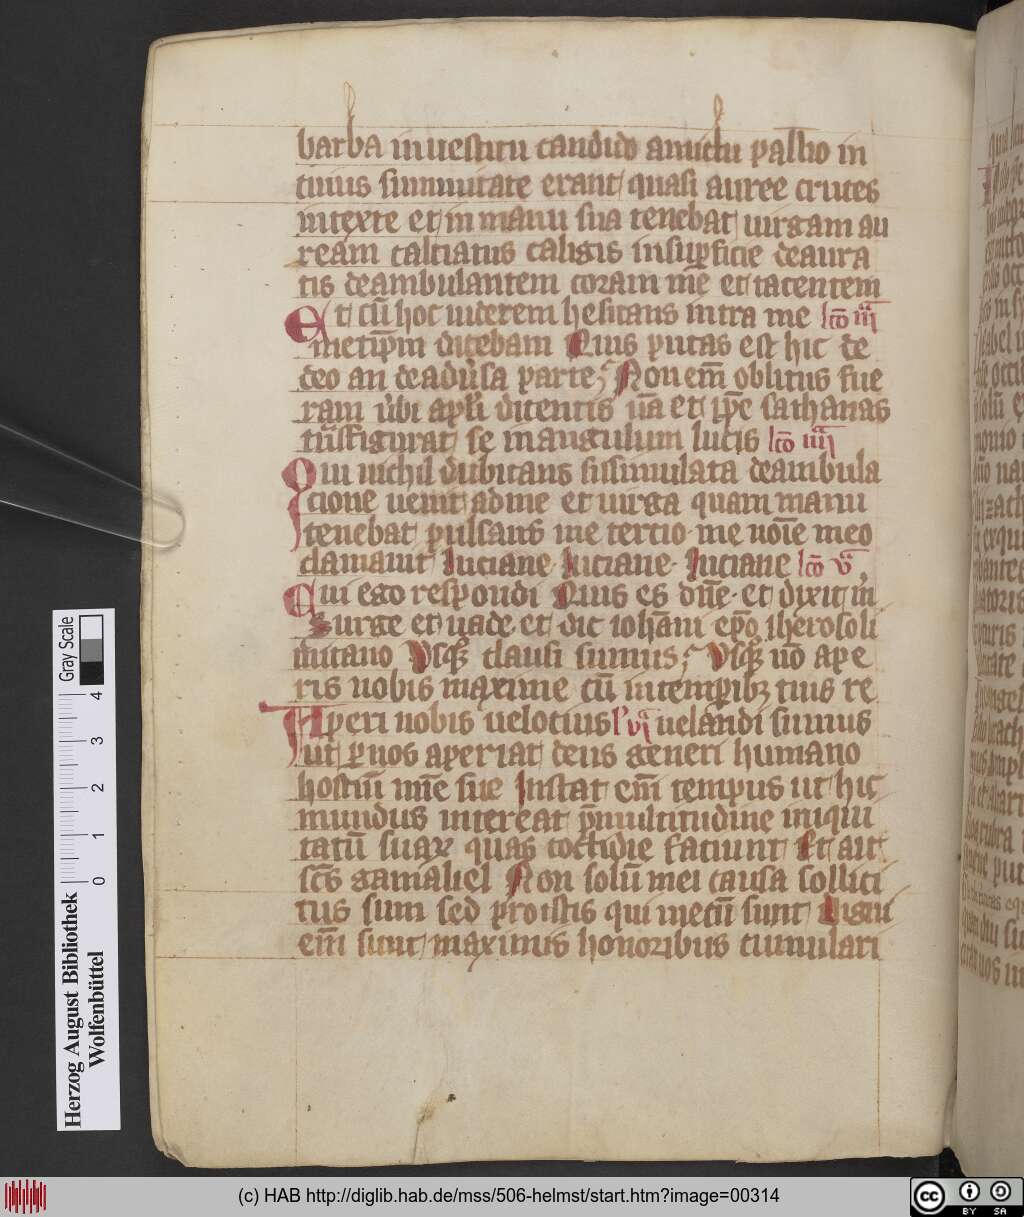 barba in uestitu candido amictu pallio in
cuius summitate erant quasi auree cruces
intexte et in manu sua tenebat uirgam au
ream calciatus caligis insupficie deaura
tis deambulantem coram me et tacentem
Et cū hoc uiderem hesitans intra me lcō iiiᵃ
metipm dicebam Quis putas est hic de
deo an deadusa parte Non em oblitus fue
ram ubi apli dicentis qa et ipe sathanas
tnsfigurat se inangulum lucis lcō iiiiᵃ
Qui nichil dubitans sissimulata deambula
cione uenit adme et uirga quam manu
tenebat pulsans me tercio me noie meo
clamauit luciane luciane luciane lcō vᵃ
Cui ego respondi Quis es dne et dixit m
Surge et uade et dic iohāni epo iherosoli
mitano Usq̄ clausi sumus Usq̄ nō ape
ris nobis maxime cū intempibꝫ tuis re
Aperi nobis uelociuis l' viᵃ uelandi sumus
ut p nos aperiat deus generi humano
hostiū mie sue Instat em tempus ut hic
mundus intereat p multitudine iniqui
tatū suaꝝ quas cottidie faciunt Et ait
scs gamaliel Non solū mei causa sollici
tus sum sed pro istis qui mecū sunt Digni
em sunt maximis honoribus tumulari
Gray Scale
0 1 2 3 4
Herzog August Bibliothek
Wolfenbüttel
(c) HAB http://diglib.hab.de/mss/506-helmst/start.htm?image=00314
cc BY SA